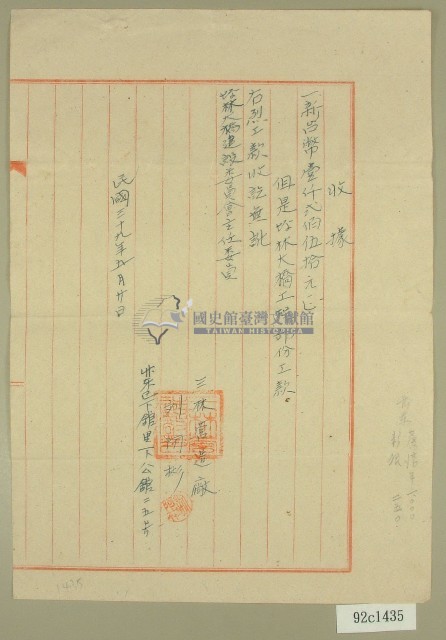 收據
一新台幣壹仟弍佰伍拾元正
但是竹林大橋工程部份工款。
右烈工款收訖無訛
竹林大橋建設委員會主任委員
民國三十九年五月廿日
三林營造廠
竹東鎮下舘里下公舘二五号
國史館臺灣文獻館
TAIWAN HISTORICA
1435
92c1435